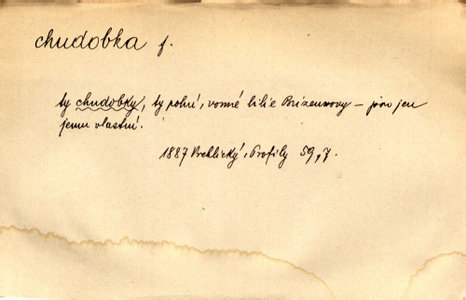 chudobka f.
ty chudobky, ty polní, vonné lilie Brizeuxovy – jsou jen
jemu vlastní.
1887 Vrchlický, Profily 59,7.